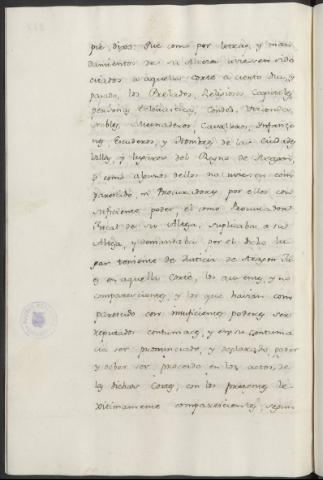 pie, dixo: Que como por letras, y man-
damientos de su Alteza uviesen sido
citados a aquella corte a cierto dia, ya
pasado, los Prelados, Religiosos, Capitoles
personas Eclesiasticas, Condes, Vizcondes
nobles, Mesnaderos, Cavalleros, Infanzo-
nes Escuderos, y Hombres de las Ciudades
Villas, y lugares del Reyno de Aragon,
y como algunos dellos no uviesen com-
parecido, ni Procuradores por ellos con
suficiente poder, el como Procurador
Fiscal de su Alteza, suplicaba a su
Alteza, y demandaba por el dicho lu-
gar teniente de Justicia de Aragon Juez
en aquella Corte, los ausentes, y no
comparescientes, y los que havian com-
parecido con insuficientes poderes ser
reputados contumaces, y en su contuma-
cia ser pronunciado, y declarado, poder
y deber ser procedido en los actos, de
las dichas Cortes, con los presentes le-
xitimamente comparescientes, segun